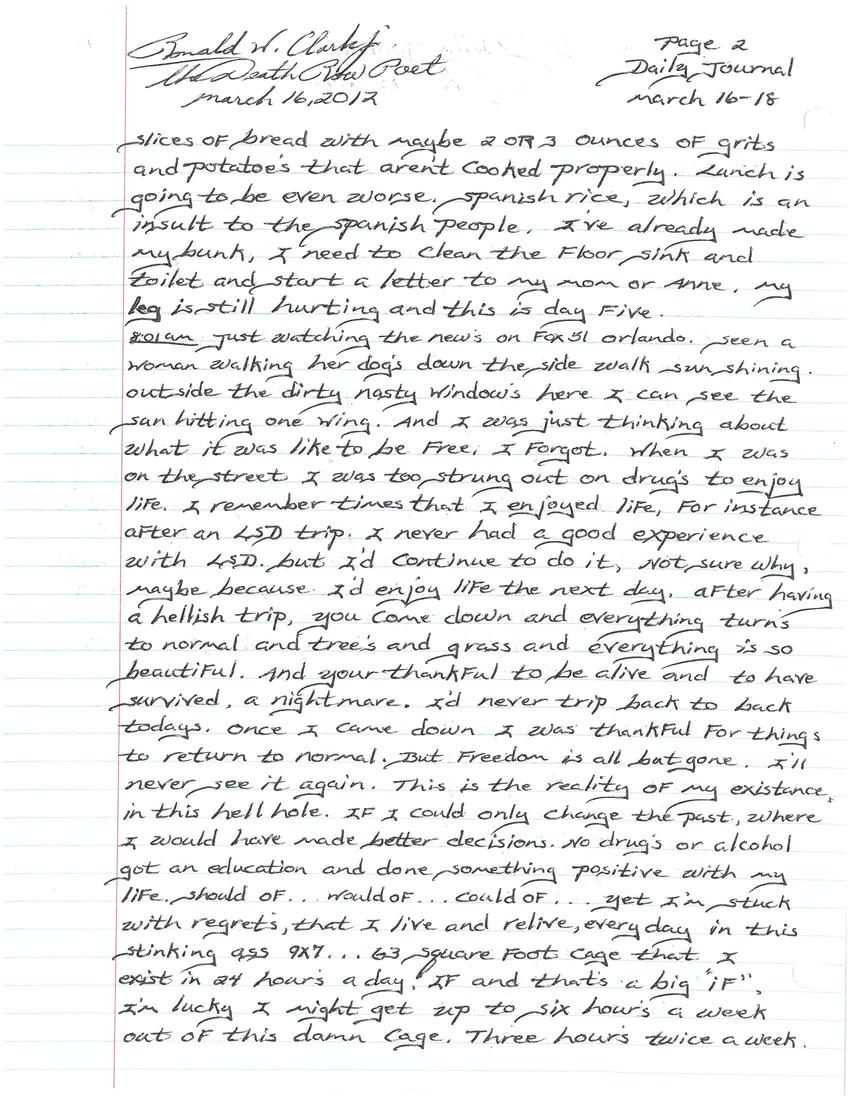 Ronald W. Clark jr.
The Death Row Poet
march 16, 2012
Page 2
Daily Journal
march 16-18
slices of bread with maybe 2 OR 3 ounces of grits
and potatoe's that aren't cooked properly. Lunch is
going to be even worse. spanish rice, which is an
insult to the spanish people. I've already made
my bunk, I need to clean the floor, sink and
toilet and start a letter to my mom or Anne. my
leg is still hurting and this is day Five.
8:01am just watching the new's on Fox 51 orlando. seen a
woman walking her dog's down the side walk sun shining.
outside the dirty nasty window's here I can see the
sun hitting one wing. And I was just thinking about
what it was like to be Free. I Forgot. When I was
on the street I was too strung out on drug's to enjoy
life. I remember times that I enjoyed life, For instance
after an LSD trip. I never had a good experience
with LSD. but I'd continue to do it, Not sure why,
maybe because I'd enjoy life the next day. after having
a hellish trip, you come down and everything turn's
to normal and tree's and grass and everything is so
beautiful. And your thankful to be alive and to have
survived, a nightmare. I'd never trip back to back
todays. once I came down I was thankful For things
to return to normal. But Freedom is all but gone. I'll
never see it again. This is the reality of my existance,
in this hell hole. IF I could only change the past, where
I would have made better decisions. No drug's or alcohol
got an education and done something positive with my
life. should of... would of... could of... yet I'm stuck
with regrets, that I live and relive, everyday in this
stinking ass 9x7... 63 square Foot cage that I
exist in 24 hour's a day! IF and that's a big "iF",
I'm lucky I might get up to six hour's a week
out of this damn cage. Three hour's twice a week.